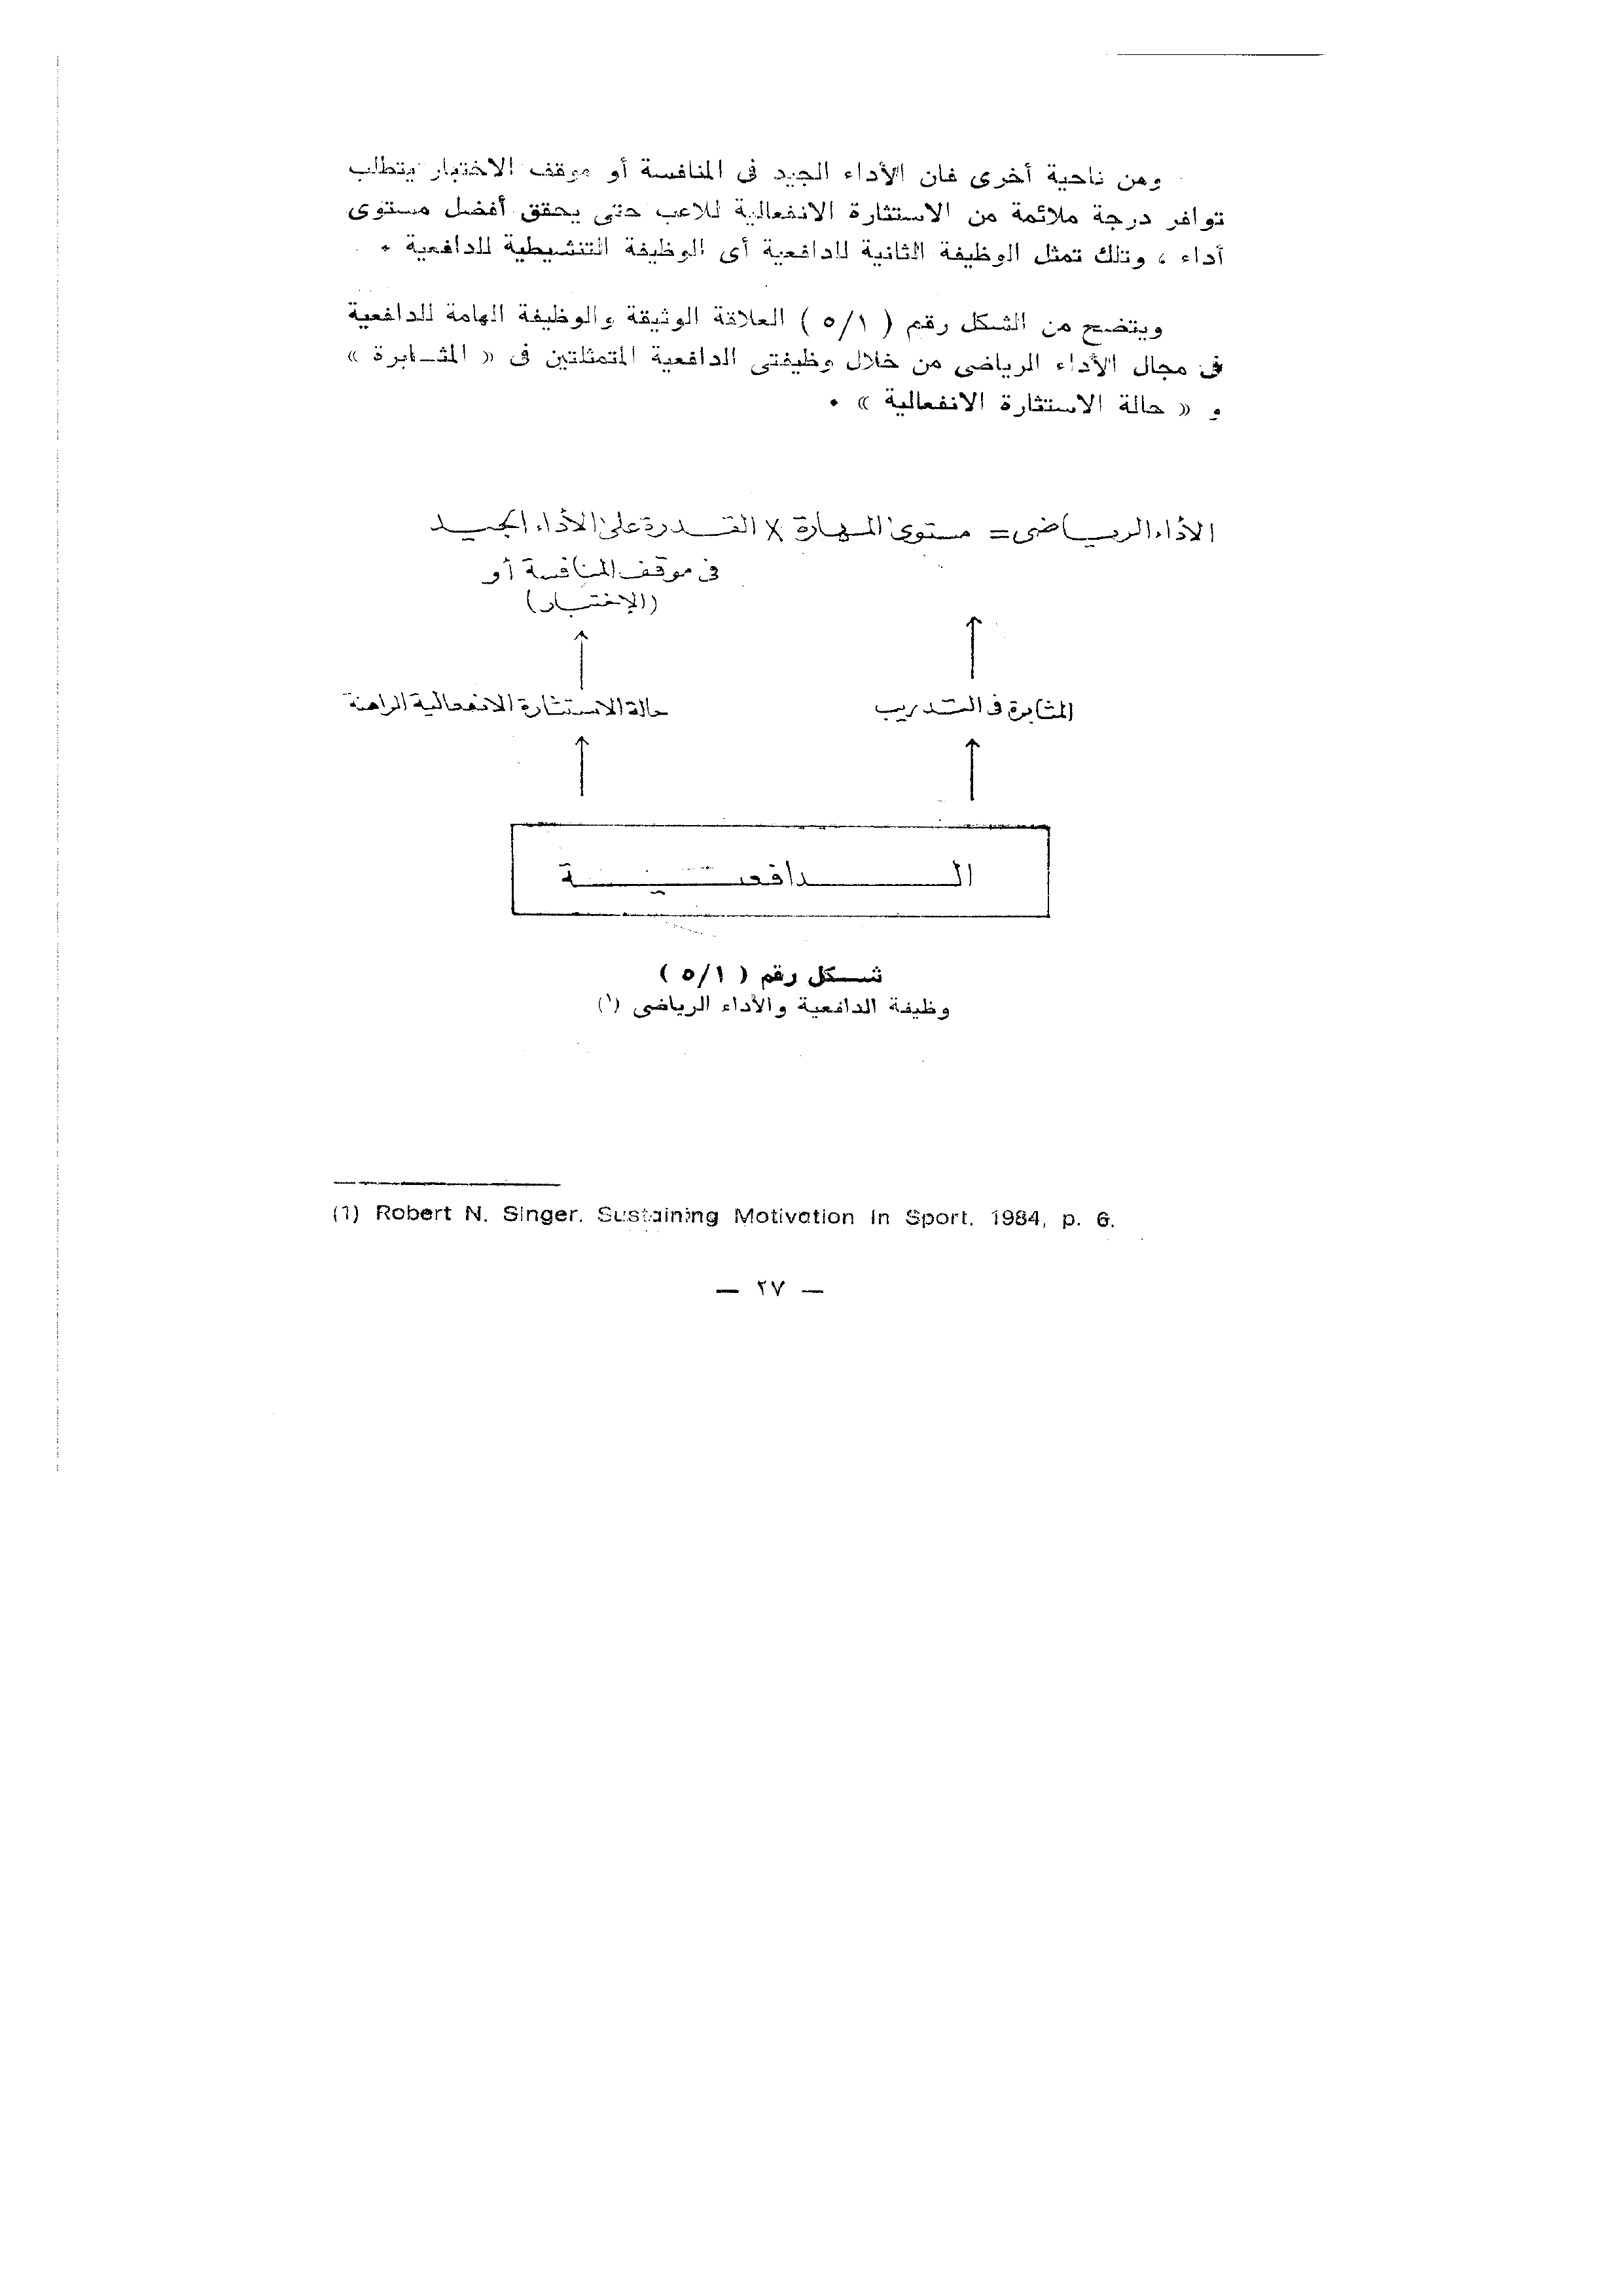 ومن ناحية أخرى فان الأداء الجيد فى المنافسة أو موقف الاختبار يتطلب
توافر درجة ملائمة من الاستثارة الانفعالية للاعب حتى يحقق أفضل مستوى
أداء ، وتلك تمثل الوظيفة الثانية للدافعية أى الوظيفة التنشيطية للدافعية .
ويتضح من الشكل رقم ( ٥/١ ) العلاقة الوثيقة والوظيفة الهامة للدافعية
فى مجال الأداء الرياضى من خلال وظيفتى الدافعية المتمثلتين فى « المثـابرة »
و « حالة الاستثارة الانفعالية » .
الأداء الريـاضى = مستوى المـهارة X القـدرة على الأداء الجيـد
فى موقف المنافسة أو
(الإختبـار)
المثابرة فى التـدريب
حالة الاستثارة الانفعالية الراهنة
الــدافعيــة
شـكل رقم ( ٥/١ )
وظيفة الدافعية والأداء الرياضى (١)
(1) Robert N. Singer. Sustaining Motivation in Sport. 1984, p. 6.
— ٢٧ —